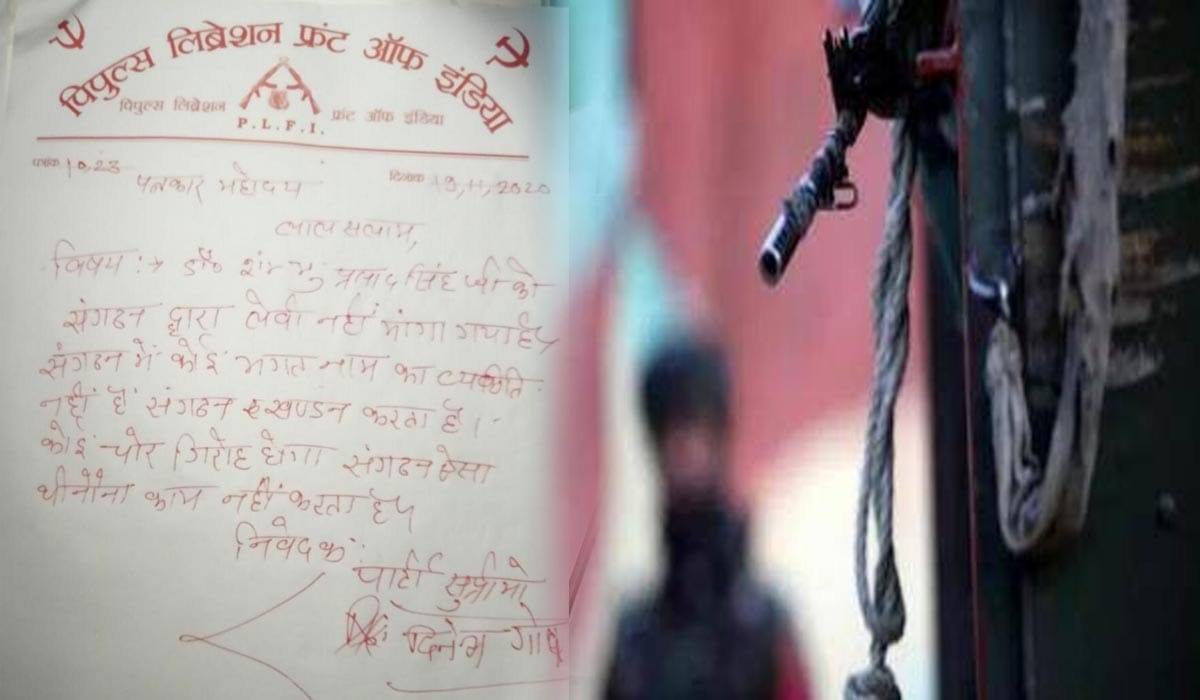 पिपुल्स लिब्रेशन फ्रंट ऑफ इंडिया
पिपुल्स लिब्रेशन फ्रंट ऑफ इंडिया
P.L.F.I.
पत्रांक 10,23 दिनांक 19,11,2020
पत्रकार महोदय
लाल सलाम,
विषय :→ डॉ० शंम्भु प्रसाद सिंह जी को
संगठन द्वारा लेवी नहीं मांगा गया है।
संगठन में कोई भगत नाम का व्यक्ति
नहीं है संगठन खण्डन करता है।
कोई चोर गिरोह होगा संगठन ऐसा
घीनौना काम नहीं करता है।
निवेदक :
पार्टी सुप्रीमो
दिनेश गोप